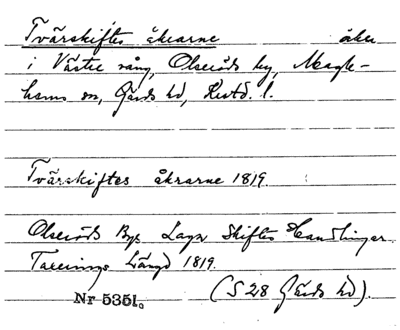 Tvärskiftes åkrarne åker
i Västra vång, Olseröds by, Maglehems sn, Gärds hd, Krstd. l.
Tvärskiftes åkrarne 1819.
Olseröds Bys Laga Skiftes Handlingar.
Taxerings Längd 1819.
Nr 5351. (S 28 Gärds hd).